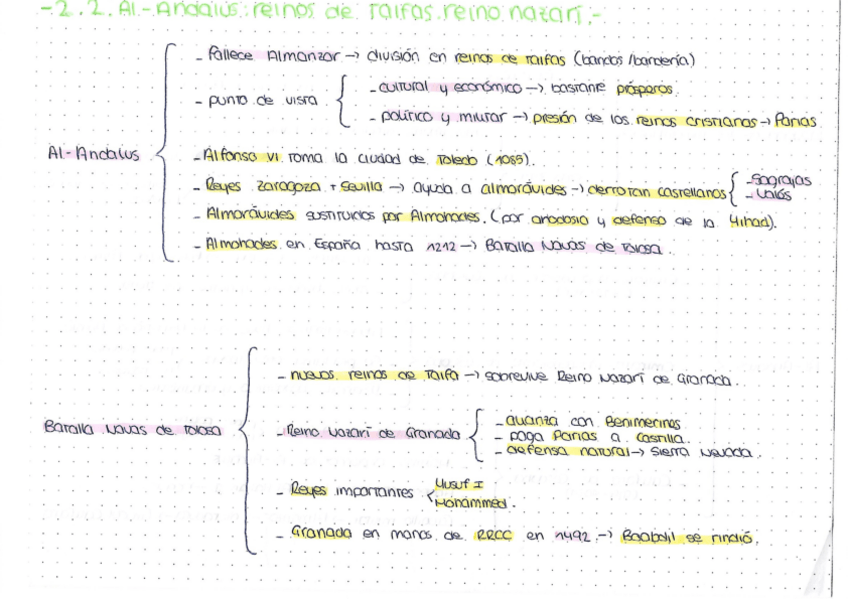 -2.2. Al-Andalus: reinos de Taifas. reino nazarí.-
- Fallece Almanzor → división en reinos de Taifas (bandos/bandería)
- punto de vista
- cultural y económico → bastante prósperos.
- político y militar → presión de los reinos cristianos → Parias
Al-Andalus
- Alfonso VI toma la ciudad de Toledo (1085).
- Reyes Zaragoza + Sevilla → ayuda a almorávides → derrotan castellanos
- Sagrajas
- Uclés
- Almorávides sustituidos por Almohades. (por ortodoxia y defensa de la Yihad).
- Almohades en España hasta 1212 → Batalla Navas de Tolosa.
- nuevos reinos de Taifa → sobrevive Reino Nazarí de Granada.
Batalla Navas de Tolosa
- Reino Nazarí de Granada
- alianza con Benimerines
- paga Parias a Castilla.
- defensa natural → Sierra Nevada.
- Reyes importantes
Yusuf I
Mohammed.
- Granada en manos de RRCC en 1492. → Boabdil se rindió.